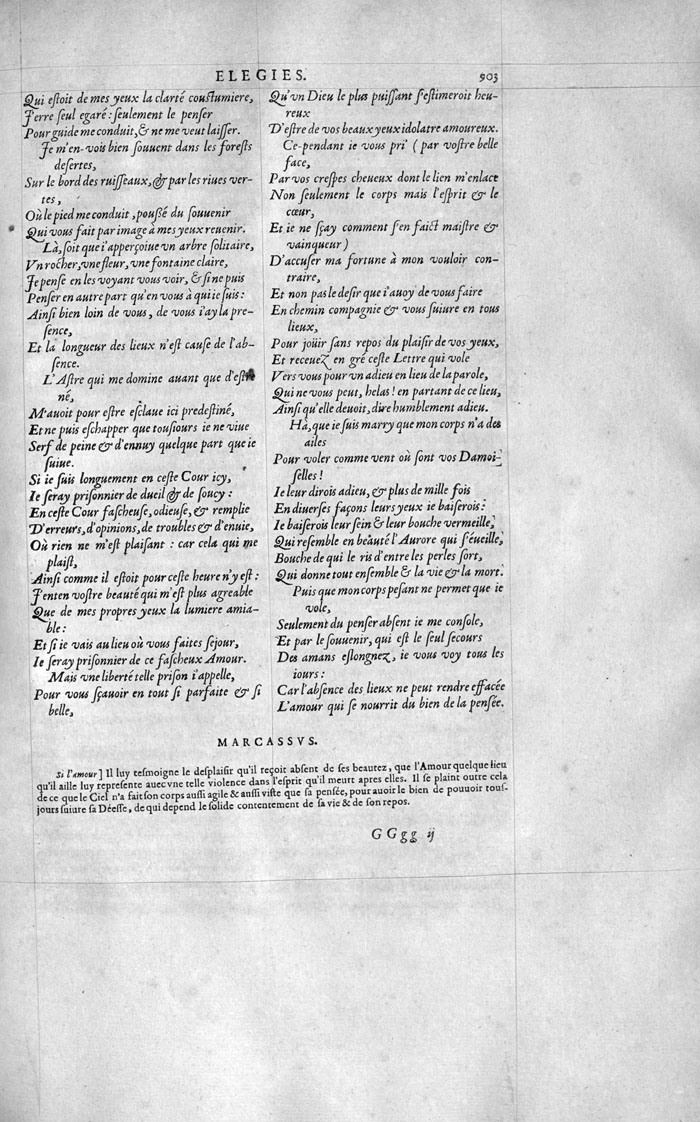 ELEGIES. 903
Qui eſtoit de mes yeux la clarté couſtumiere,
J'erre ſeul egaré: ſeulement le penſer
Pour guide me conduit, & ne me veut laiſſer.
Je m'en-vois bien ſouuent dans les foreſts
deſertes,
Sur le bord des ruiſſeaux, & par les riues ver-
tes,
Où le pied me conduit, pouſſé du ſouuenir
Qui vous fait par image à mes yeux reuenir.
Là, ſoit que i'apperçoiue vn arbre ſolitaire,
Vn rocher, vne fleur, vne fontaine claire,
Je penſe en les voyant vous voir, & ſi ne puis
Penſer en autre part qu'en vous à qui ie ſuis:
Ainſi bien loin de vous, de vous i'ay la pre-
ſence,
Et la longueur des lieux n'eſt cauſe de l'ab-
ſence.
L'Aſtre qui me domine auant que d'eſtre
né,
M'auoit pour eſtre eſclaue ici predeſtiné,
Et ne puis eſchapper que touſiours ie ne viue
Serf de peine & d'ennuy quelque part que ie
ſuiue.
Si ie ſuis longuement en ceſte Cour icy,
Ie ſeray priſonnier de dueil & de ſoucy:
En ceſte Cour faſcheuſe, odieuſe, & remplie
D'erreurs, d'opinions, de troubles & d'enuie,
Où rien ne m'eſt plaiſant: car cela qui me
plaiſt,
Ainſi comme il eſtoit pour ceſte heure n'y eſt:
J'enten voſtre beauté qui m'eſt plus agreable
Que de mes propres yeux la lumiere amia-
ble:
Et ſi ie vais au lieu où vous faites ſejour,
Ie ſeray priſonnier de ce faſcheux Amour.
Mais vne liberté telle priſon i'appelle,
Pour vous ſçauoir en tout ſi parfaite & ſi
belle,
Qu'vn Dieu le plus puiſſant ſ'eſtimeroit heu-
reux
D'eſtre de vos beaux yeux idolatre amoureux.
Ce-pendant ie vous pri' (par voſtre belle
face,
Par vos creſpes cheueux dont le lien m'enlace
Non ſeulement le corps mais l'eſprit & le
cœur,
Et ie ne ſçay comment ſ'en faict maiſtre &
vainqueur)
D'accuſer ma fortune à mon vouloir con-
traire,
Et non pas le deſir que i'auoy de vous faire
En chemin compagnie & vous ſuiure en tous
lieux,
Pour joüir ſans repos du plaiſir de vos yeux,
Et receuez en gré ceſte Lettre qui vole
Vers vous pour vn adieu en lieu de la parole,
Qui ne vous peut, helas! en partant de ce lieu,
Ainſi qu'elle deuoit, dire humblement adieu.
Hà, que ie ſuis marry que mon corps n'a des
ailes
Pour voler comme vent où ſont vos Damoi-
ſelles!
Ie leur dirois adieu, & plus de mille fois
En diuerſes façons leurs yeux ie baiſerois:
Ie baiſerois leur ſein & leur bouche vermeille,
Qui reſemble en beauté l'Aurore qui ſ'éueille,
Bouche de qui le ris d'entre les perles ſort,
Qui donne tout enſemble & la vie & la mort.
Puis que mon corps peſant ne permet que ie
vole,
Seulement du penſer abſent ie me conſole,
Et par le ſouuenir, qui eſt le ſeul ſecours
Des amans eſlongnez, ie vous voy tous les
iours:
Car l'abſence des lieux ne peut rendre effacée
L'amour qui ſe nourrit du bien de la penſée.
MARCASSVS.
Si l'amour] Il luy teſmoigne le deſplaiſir qu'il reçoit abſent de ſes beautez, que l'Amour quelque lieu
qu'il aille luy repreſente auec vne telle violence dans l'eſprit qu'il meurt apres elles. Il ſe plaint outre cela
de ce que le Ciel n'a fait ſon corps auſſi agile & auſſi viſte que ſa penſée, pour auoir le bien de pouuoir touſ-
jours ſuiure ſa Déeſſe, de qui depend le ſolide contentement de ſa vie & de ſon repos.
GGgg ij